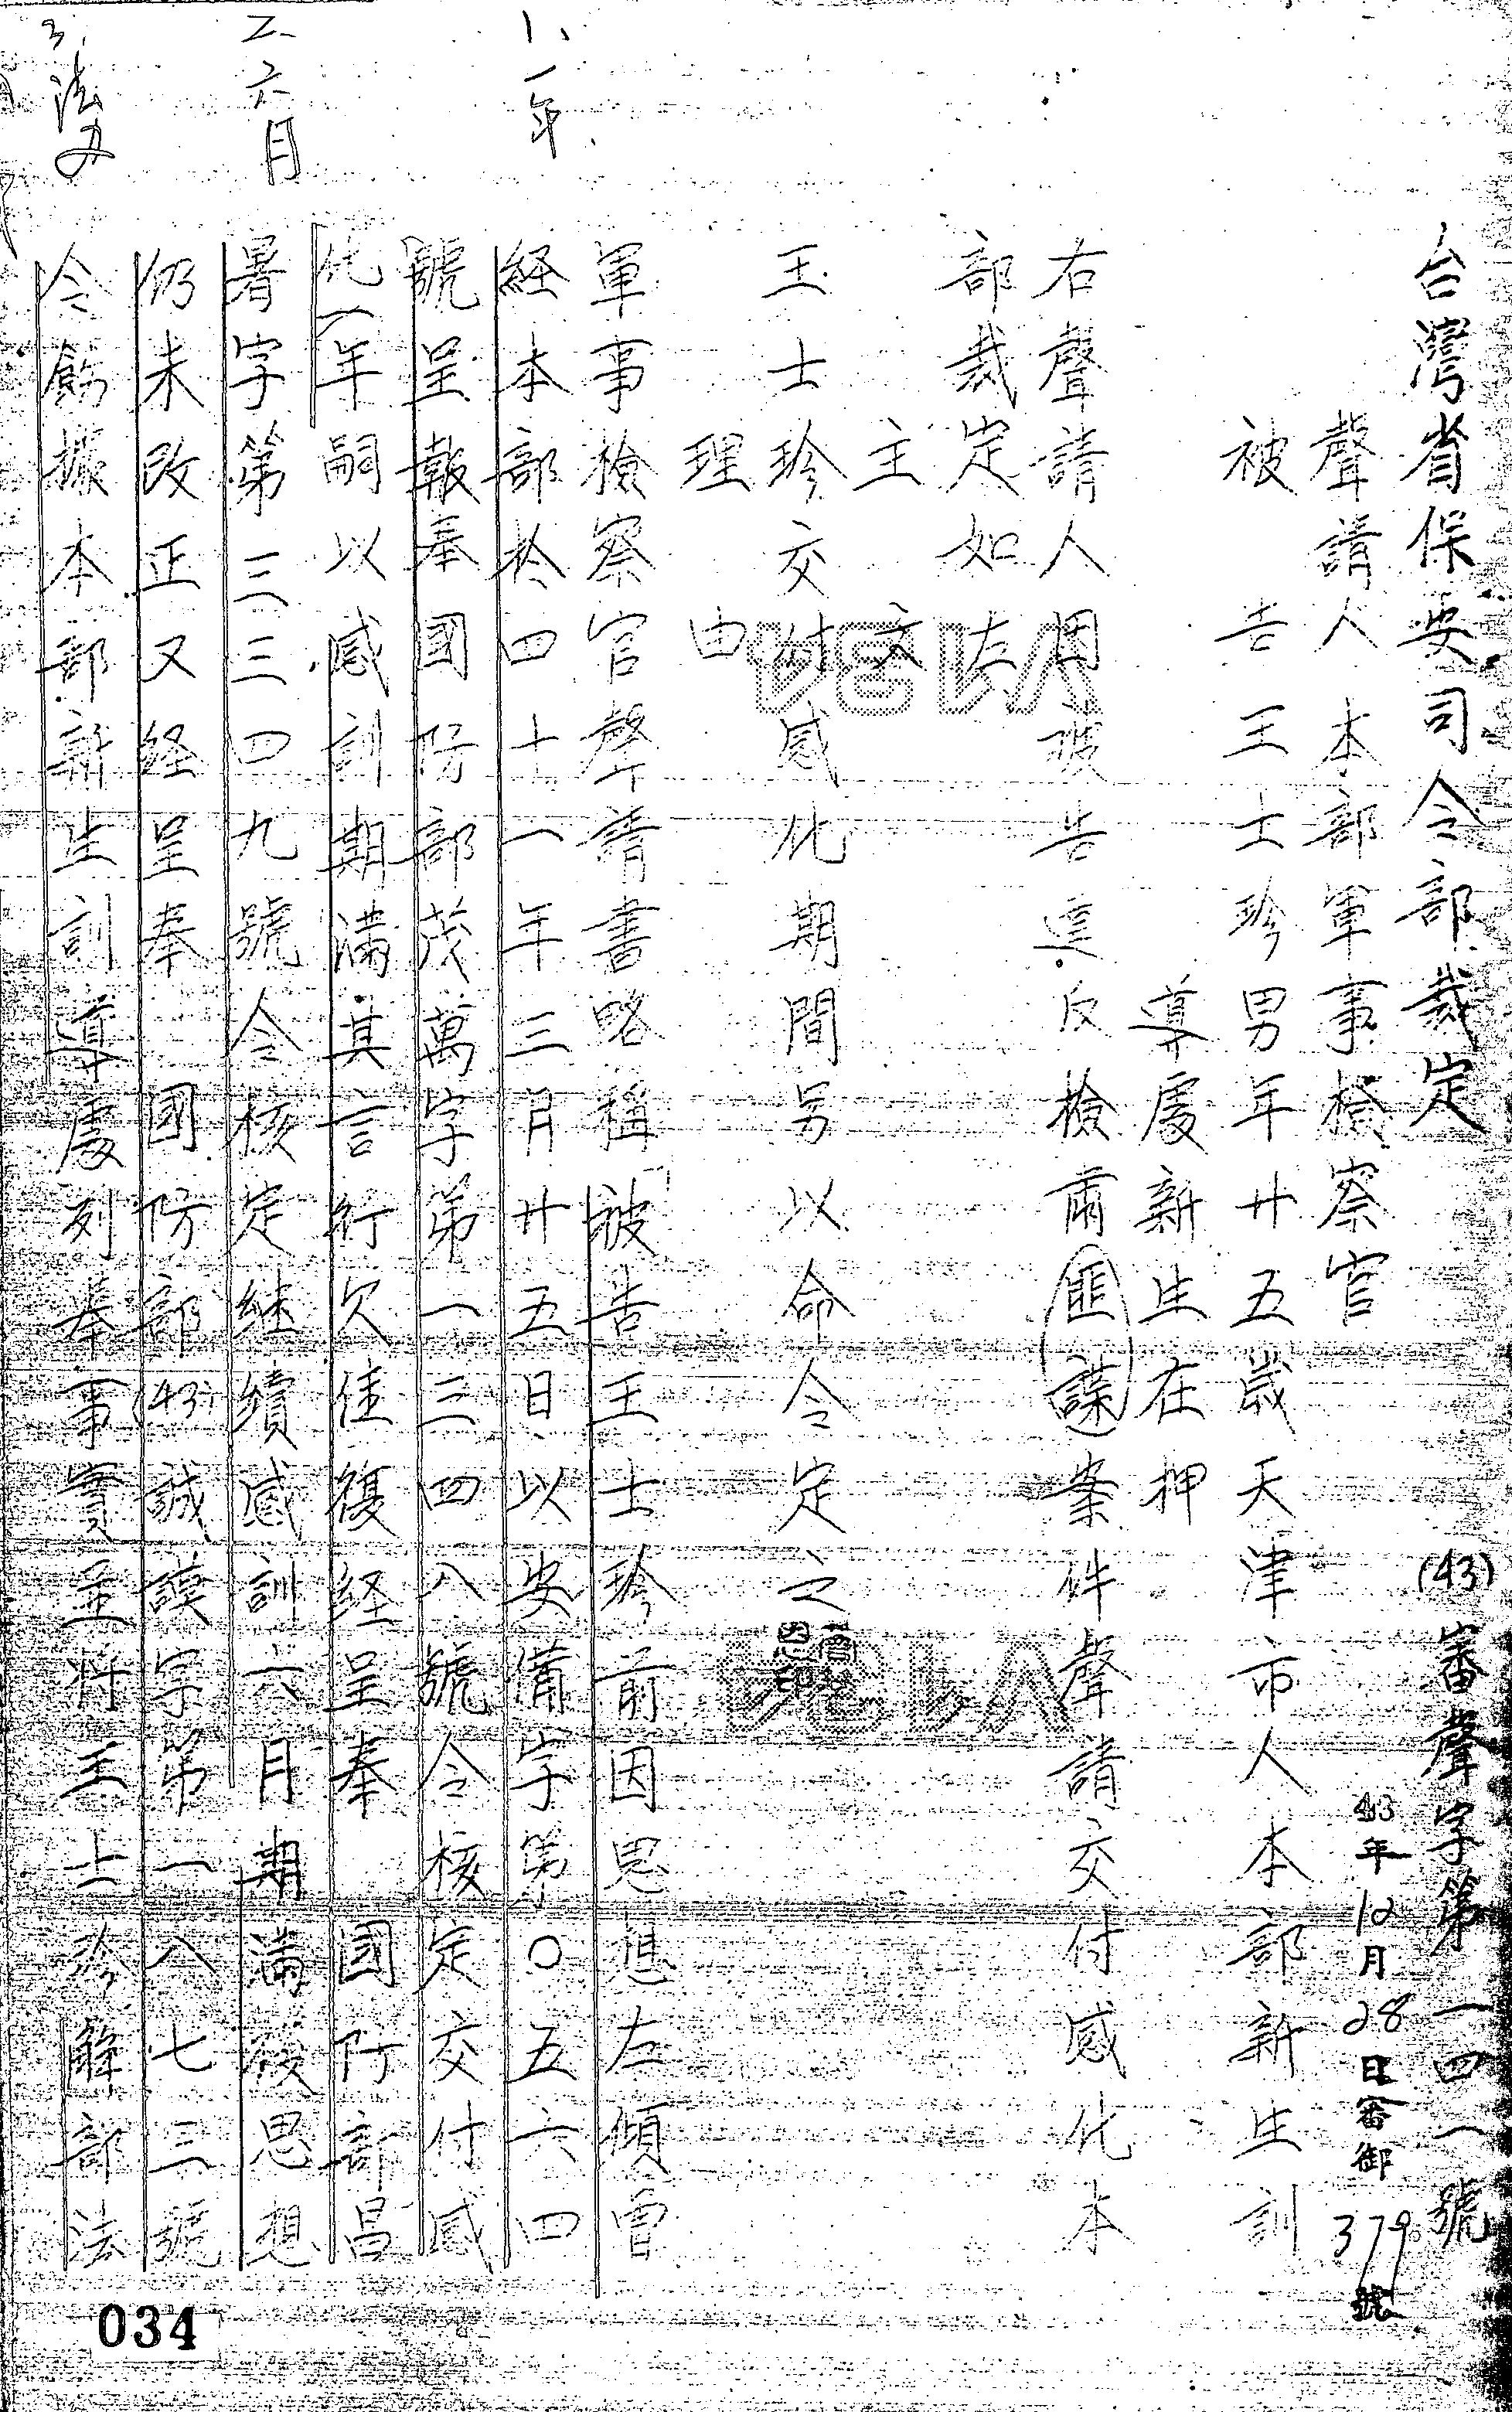 台灣省保安司令部裁定
(43)審聲字第一四二號
43年12月28日審御379號
聲請人本部軍事檢察官
被告王士珍男年廿五歲天津市人本部新生訓
導處新生在押
右聲請人因被告違反檢肅匪諜案件聲請交付感化本
部裁定如左
主文
王士珍交付感化期間另以命令定之
理由
軍事檢察官聲請書略稱被告王士珍前因思想左傾曾
経本部於四十一年三月廿五日以安備字第〇五六四
號呈報奉國防部茂萬字第一三四八號令核定交付感
化一年嗣以感訓期滿其言行欠佳復経呈奉 國防部昌
署字第三三四九號令核定継續感訓六月期滿後思想
仍未改正又経呈奉 國防部(43)誠謨字第一八七三號
令飭據本部新生訓導處列舉事實並將王士珍解部法
1、一年
2、六月
3、
034